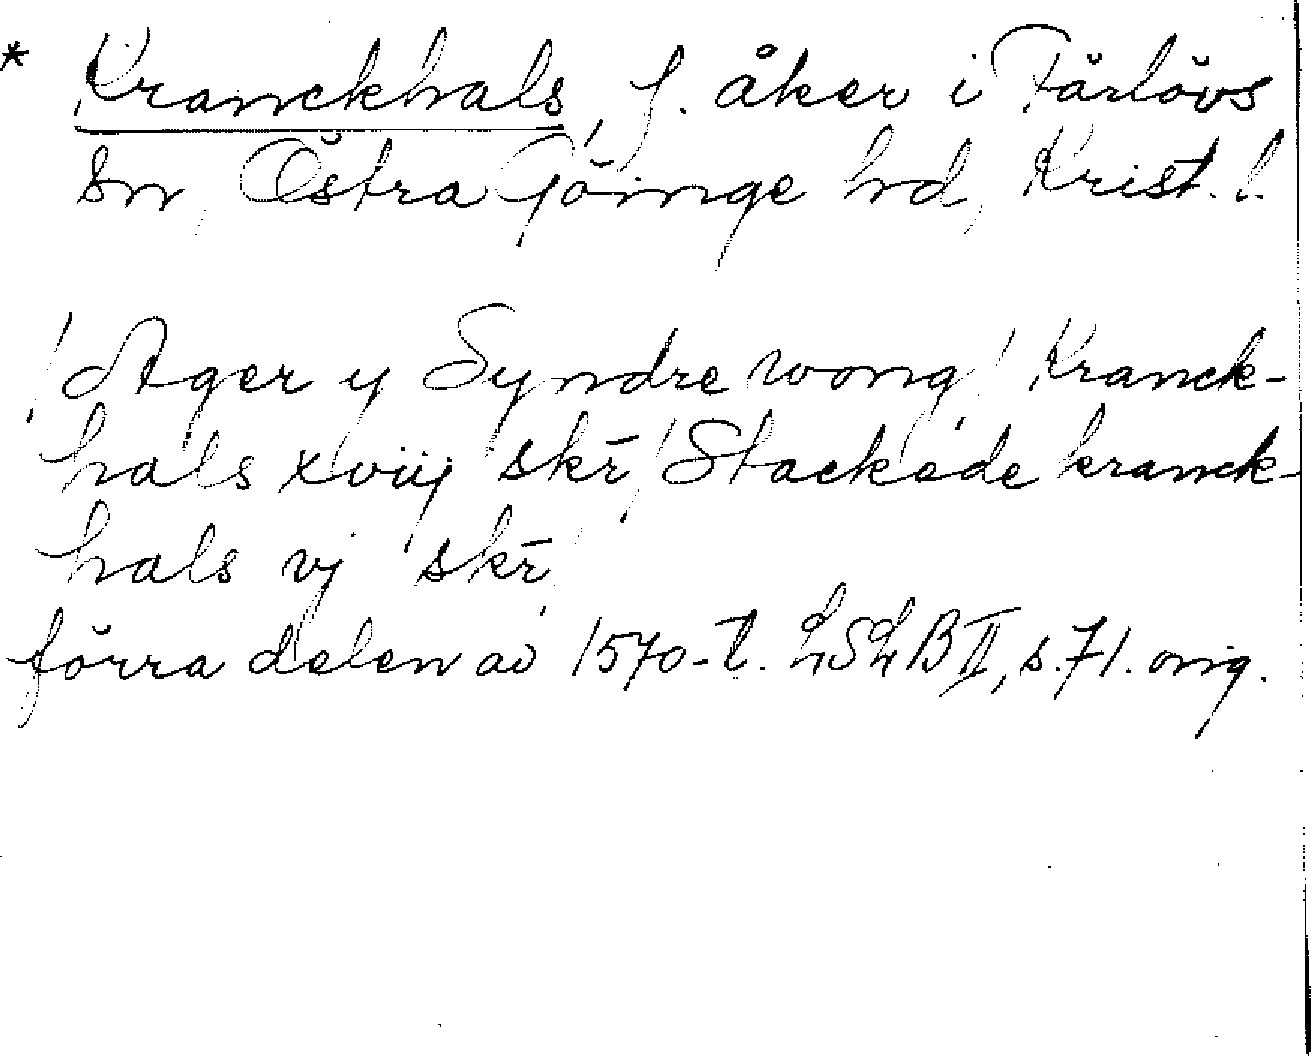 * Kranckhals, f. åker i Färlövs
sn, Östra Göinge hd, Krist. l.
/Ager y Syndre wong/ Kranck-
hals xviij skr̄,/ Stackede kranck-
hals vj skr̄,
förra delen av 1570-t. LSLB II, s. 71. orig.